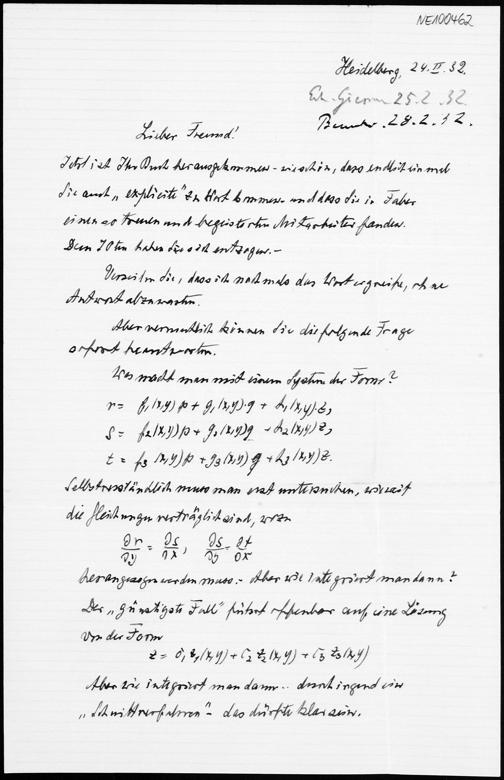 NE100462
Heidelberg, 24.II.32.
25.2.32.
28.2.32.
Lieber Freund!
Jetzt ist Ihr Buch herausgekommen – wie schön, dass endlich einmal
Sie auch „explicite" zu Wort kommen – und dass Sie in Faber
einen so treuen und begeisterten Mitarbeiter fanden.
haben Sie sich entzogen. –
Verzeihen Sie, dass ich nochmals das Wort ergreife, ohne
Antwort abzuwarten.
Aber vermutlich können Sie die folgende Frage
sofort beantworten.
Was macht man mit einem System der Form?
r = f₁(x,y)p + g₁(x,y)·q + h₁(x,y)z,
s = f₂(x,y)p + g₂(x,y)q + h₂(x,y)z,
t = f₃(x,y)p + g₃(x,y)q + h₃(x,y)z.
Selbstverständlich muss man erst untersuchen, wie weit
die Gleichungen verträglich sind, wozu
∂r/∂y = ∂s/∂x, ∂s/∂y = ∂t/∂x
herangezogen werden muss. – Aber wie integriert man dann?
Der „günstigste Fall" führt offenbar auf eine Lösung
von der Form
z = c₁z₁(x,y) + c₂z₂(x,y) + c₃z₃(x,y)
Aber wie integriert man dann – durch irgend ein
„Schnittverfahren" – das dürfte klar sein.